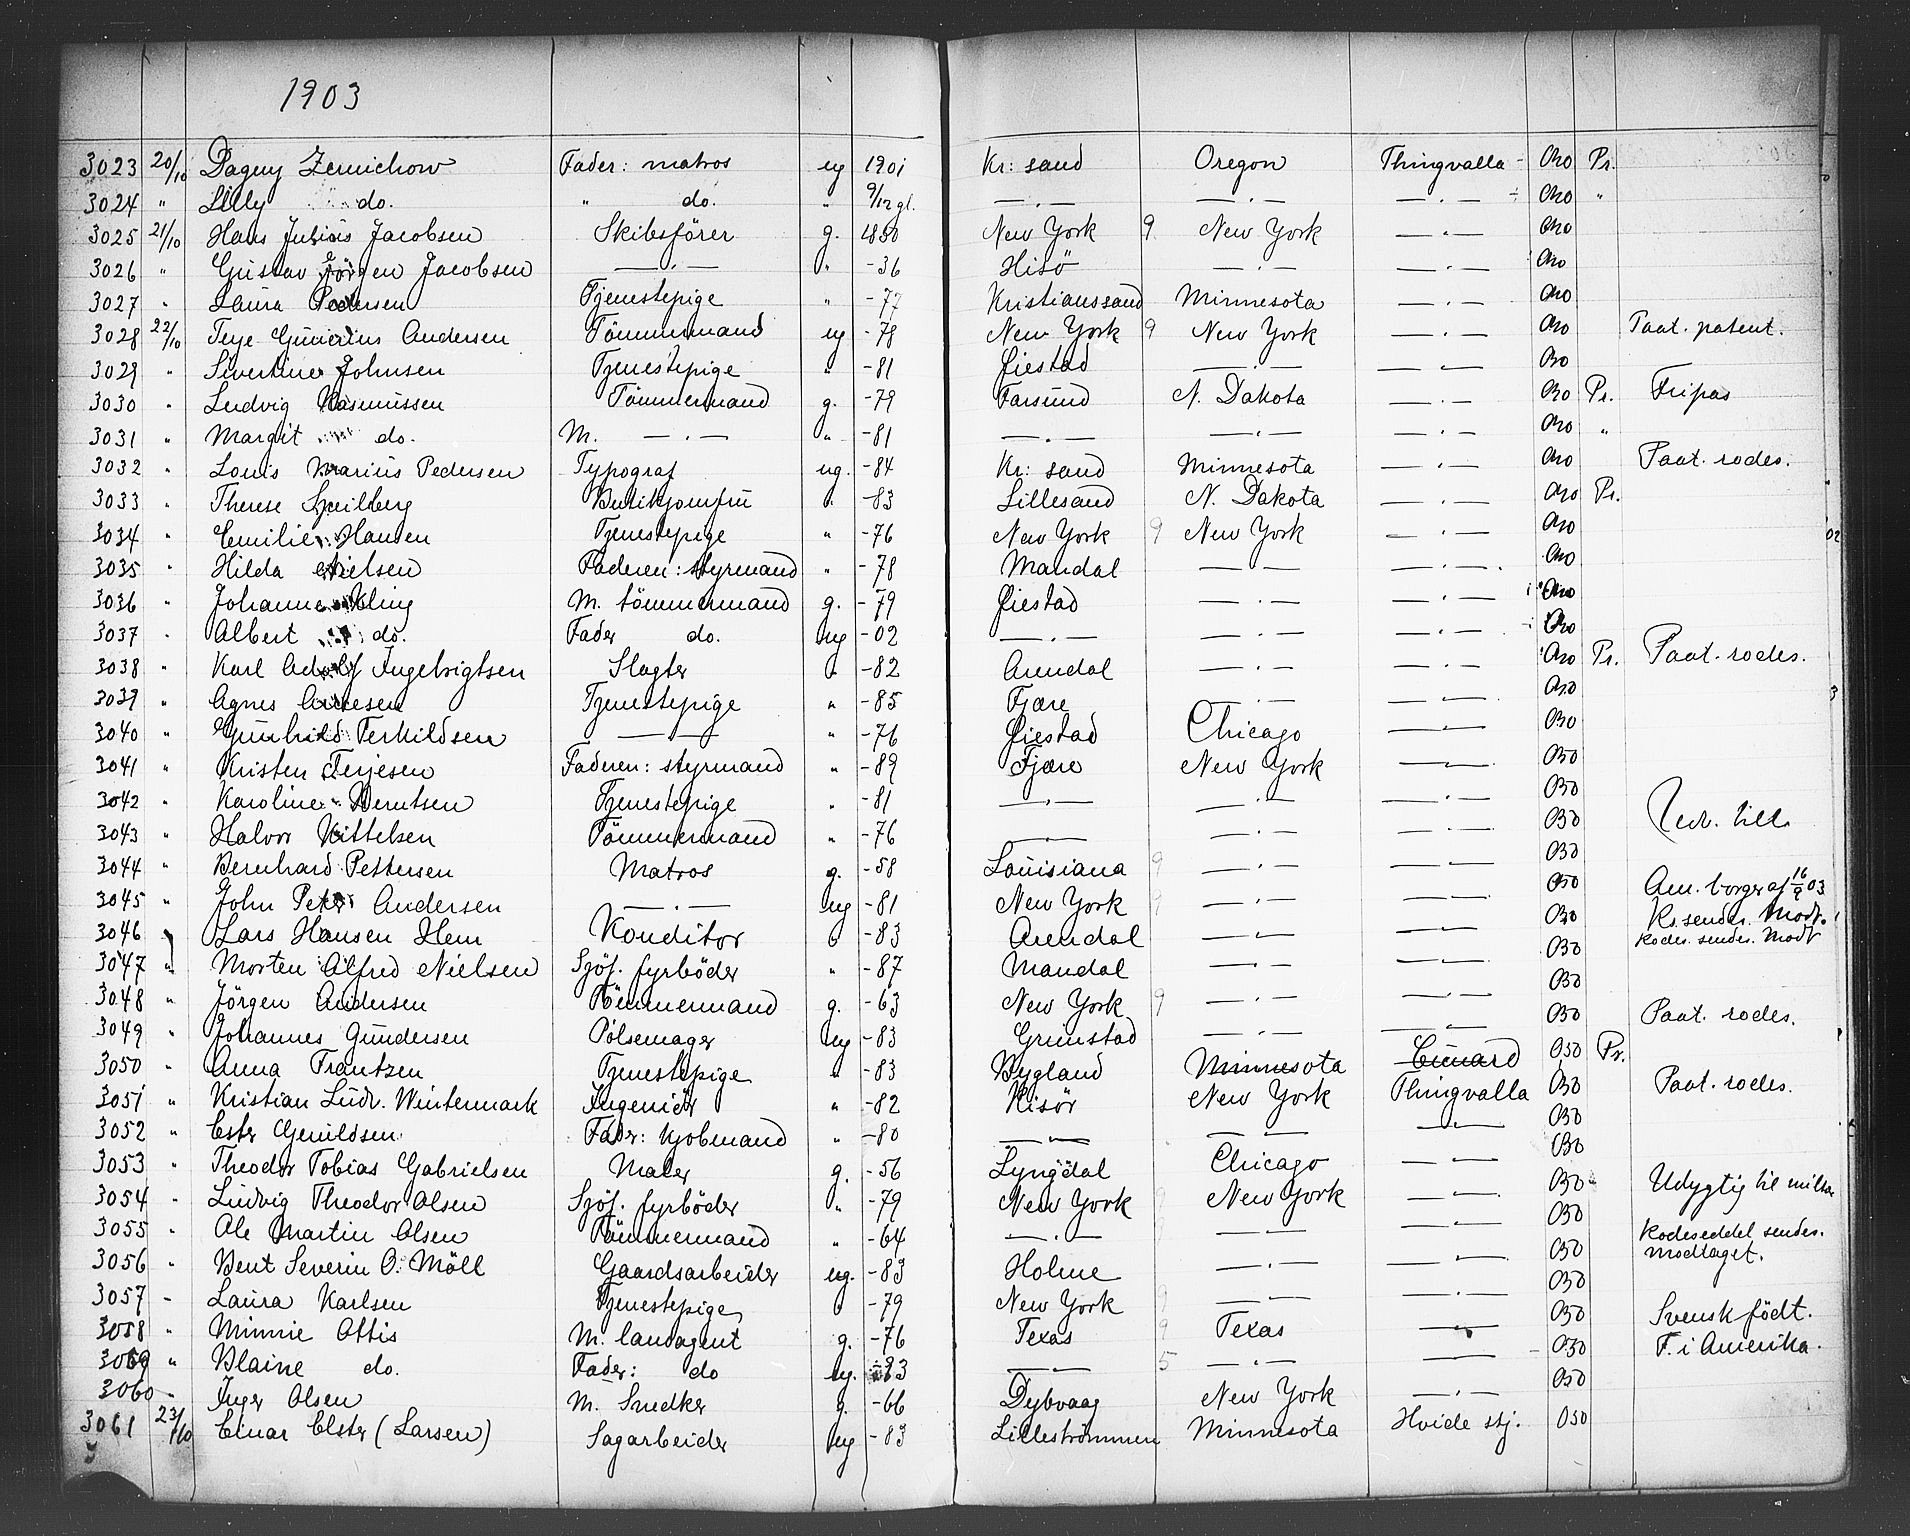 1903
3023 20/10 Dagny Zernichow Fader: matros ug 1901 Kr: sand Oregon Thingvalla - Ono Pr.
3024 " Lilly do. " do. " 9/12 gl. —.— —.— —.— ÷ Ono "
3025 21/10 Hans Julius Jacobsen Skibsförer g. 1850 New York 9 New York —.— Ono
3026 " Gustav Jörgen Jacobsen —.— " -36 Hisö —.— —.— Ono
3027 " Laura Pedersen Tjenestepige " -77 Kristianssand Minnesota —.— Ono
3028 22/10 Teje Gunerius Andersen Tömmermand ug -78 New York 9 New York —.— Ono Paat. patent.
3029 " Sivertine Johnsen Tjenestepige " -81 Öiestad —.— —.— Ono
3030 " Ludvig Rasmussen Tömmermand g. -79 Farsund N. Dakota —.— Ono Pr. Fripas
3031 " Margit do. M. —.— " -81 —.— —.— —.— Ono "
3032 " Louis Marius Pedersen Typograf ug. -84 Kr: sand Minnesota —.— Ono Paat. rodes.
3033 " Therese Speilberg Butikjomfru " -83 Lillesand N. Dakota —.— Ono Pr.
3034 " Emilie Hansen Tjenestepige " -76 New York 9 New York —.— Ono
3035 " Hilda Nielsen Faderen: styrmand " -78 Mandal —.— —.— Ono
3036 " Johanne Kling M. tömmermand g. -79 Öiestad —.— —.— Ono
3037 " Albert do. Fader do. ug -02 —.— —.— —.— Ono
3038 " Karl Adolf Ingebrigtsen Slagter " -82 Arendal —.— —.— Ono Pr. Paat. rodes.
3039 " Agnes Tjenestepige " -85 Fjære —.— —.— Ono
3040 " Gunhild Terkildsen —.— " -76 Öiestad Chicago —.— Ono
3041 " Kristen Terjesen Faderen: styrmand " -89 Fjære New York —.— Ono
3042 " Karoline Berntsen Tjenestepige " -81 —.— —.— —.— Ono
3043 " Halvor Kittelsen Tömmermand " -76 —.— —.— —.— Ono
3044 " Bernhard Pettersen Matros g. -58 Louisiana 9 —.— —.— Ono
3045 " John Peter Andersen —.— ug -81 New York 9 —.— —.— Ono Am. borger af 16/9 03
3046 " Lars Hansen Hem Konditor " -83 Arendal —.— —.— Ono sendes. Modt.
3047 " Morten Alfred Nielsen Sjöf. fyrböder " -87 Mandal —.— —.— Ono Rodes. sendes. Modt
3048 " Jörgen Andersen Tömmermand g. -63 New York 9 —.— —.— Ono
3049 " Johannes Gundersen Pölsemager ug -83 Grimstad —.— —.— Ono Paat. rodes.
3050 " Anna Frantzen Tjenestepige " -83 Bygland Minnesota Cunard Ono Pr.
3051 " Kristian Ludv. Wintermark Ingeniör " -82 Risör New York Thingvalla Ono Paat. rodes.
3052 " Ester Genildsen Fader: Kjobmand " -80 —.— —.— —.— Ono
3053 " Theodor Tobias Gabrielsen Maler g. -56 Lyngdal Chicago —.— Ono
3054 " Ludvig Theodor Olsen Sjöf. fyrböder " -79 New York 9 New York —.— Ono Udygtig til
3055 " Ole Martin Olsen Tömmermand " -64 —.— —.— —.— Ono
3056 " Bent Severin O. Möll Gaardsarbeider ug. -83 Holme —.— —.— Ono Rodeseddel sendes. modtaget.
3057 " Laura Karlsen Tjenestepige " -79 New York 9 —.— —.— Ono
3058 " Minnie Ottis M. landagent g. -76 Texas 9 Texas —.— Ono Svensk födt.
3059 " Blaine do. Fader: do ug. —.— 5 —.— —.— Ono F. i Amerika.
3060 " Inger Olsen M. Snedker g. -66 Dybvaag New York —.— Ono
3061 23/10 Einar Elster (Larsen) Sagarbeider ug -83 Lillestrømmen Minnesota Hvide stj. Ono